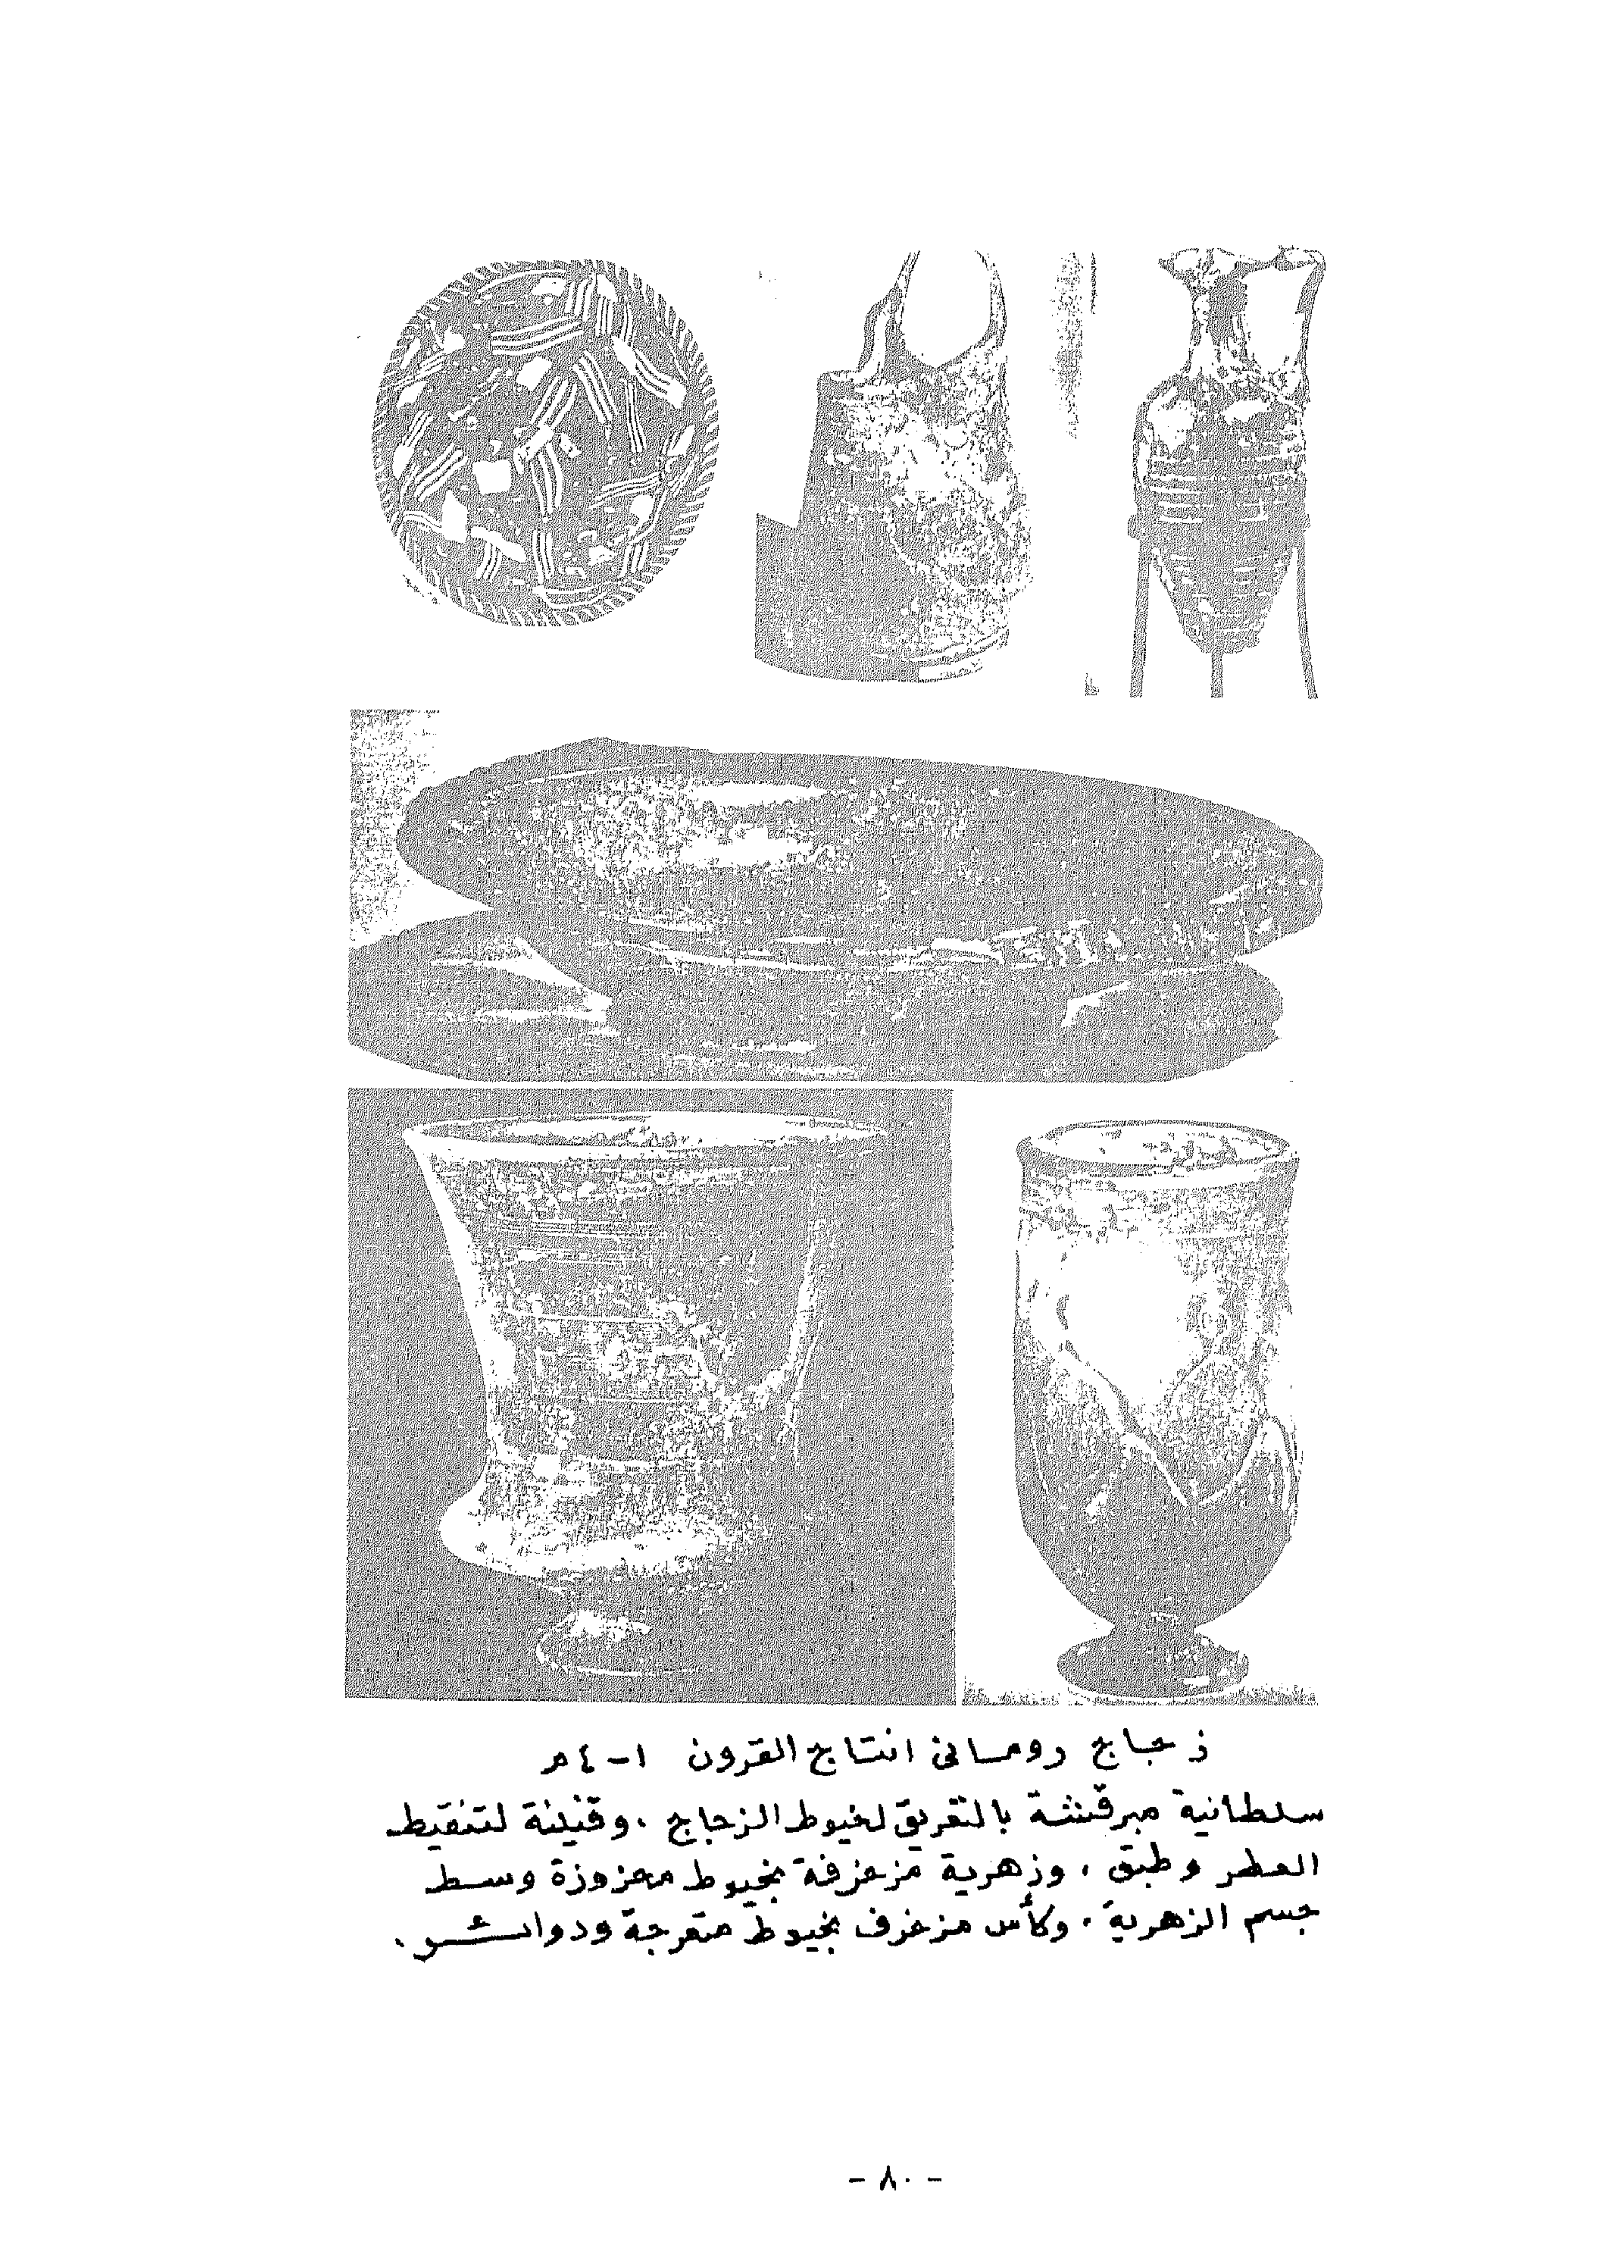 زجاج روماني انتاج القرون ١-٤م
سلطانية مبرقشة بالتفريق لخيوط الزجاج . وقنينة لتنقيط
العطر وطبق . وزهرية مزخرفة بخيوط محزوزة وسط
جسم الزهرية . وكأس مزخرف بخيوط متعرجة ودوائر .
- ٨٠ -